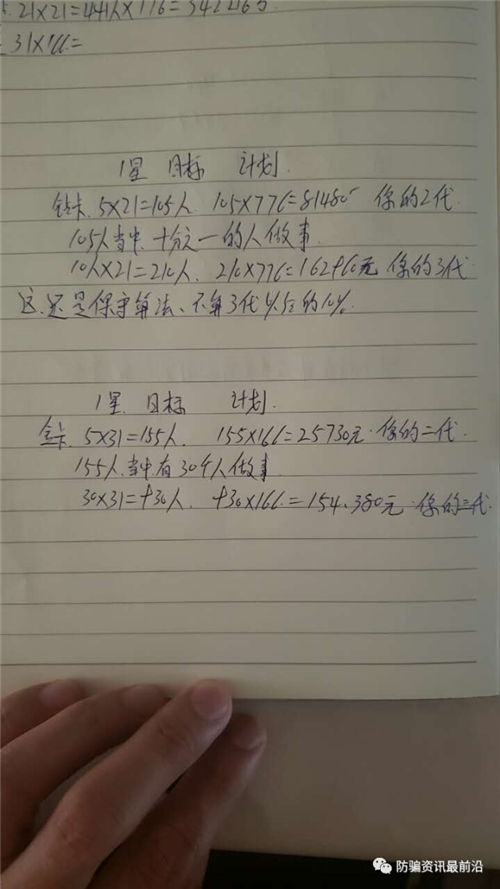 21×21=441人×776=342216
31×166=
1星 目标 计划
钻卡. 5×21=105人 105×776=81480 你的2代
105人当中.十分之一的人做事
10人×21=210人. 210×776=162960元 你的3代
这.还是保守算法、不算3代以后的10%.
1星. 目标 计划.
金卡. 5×31=155人. 155×166=25730元.你的二代.
155人.当中有30个人做事
30×31=930人. 930×166.=154.380元.你的三代.
防骗资讯最前沿